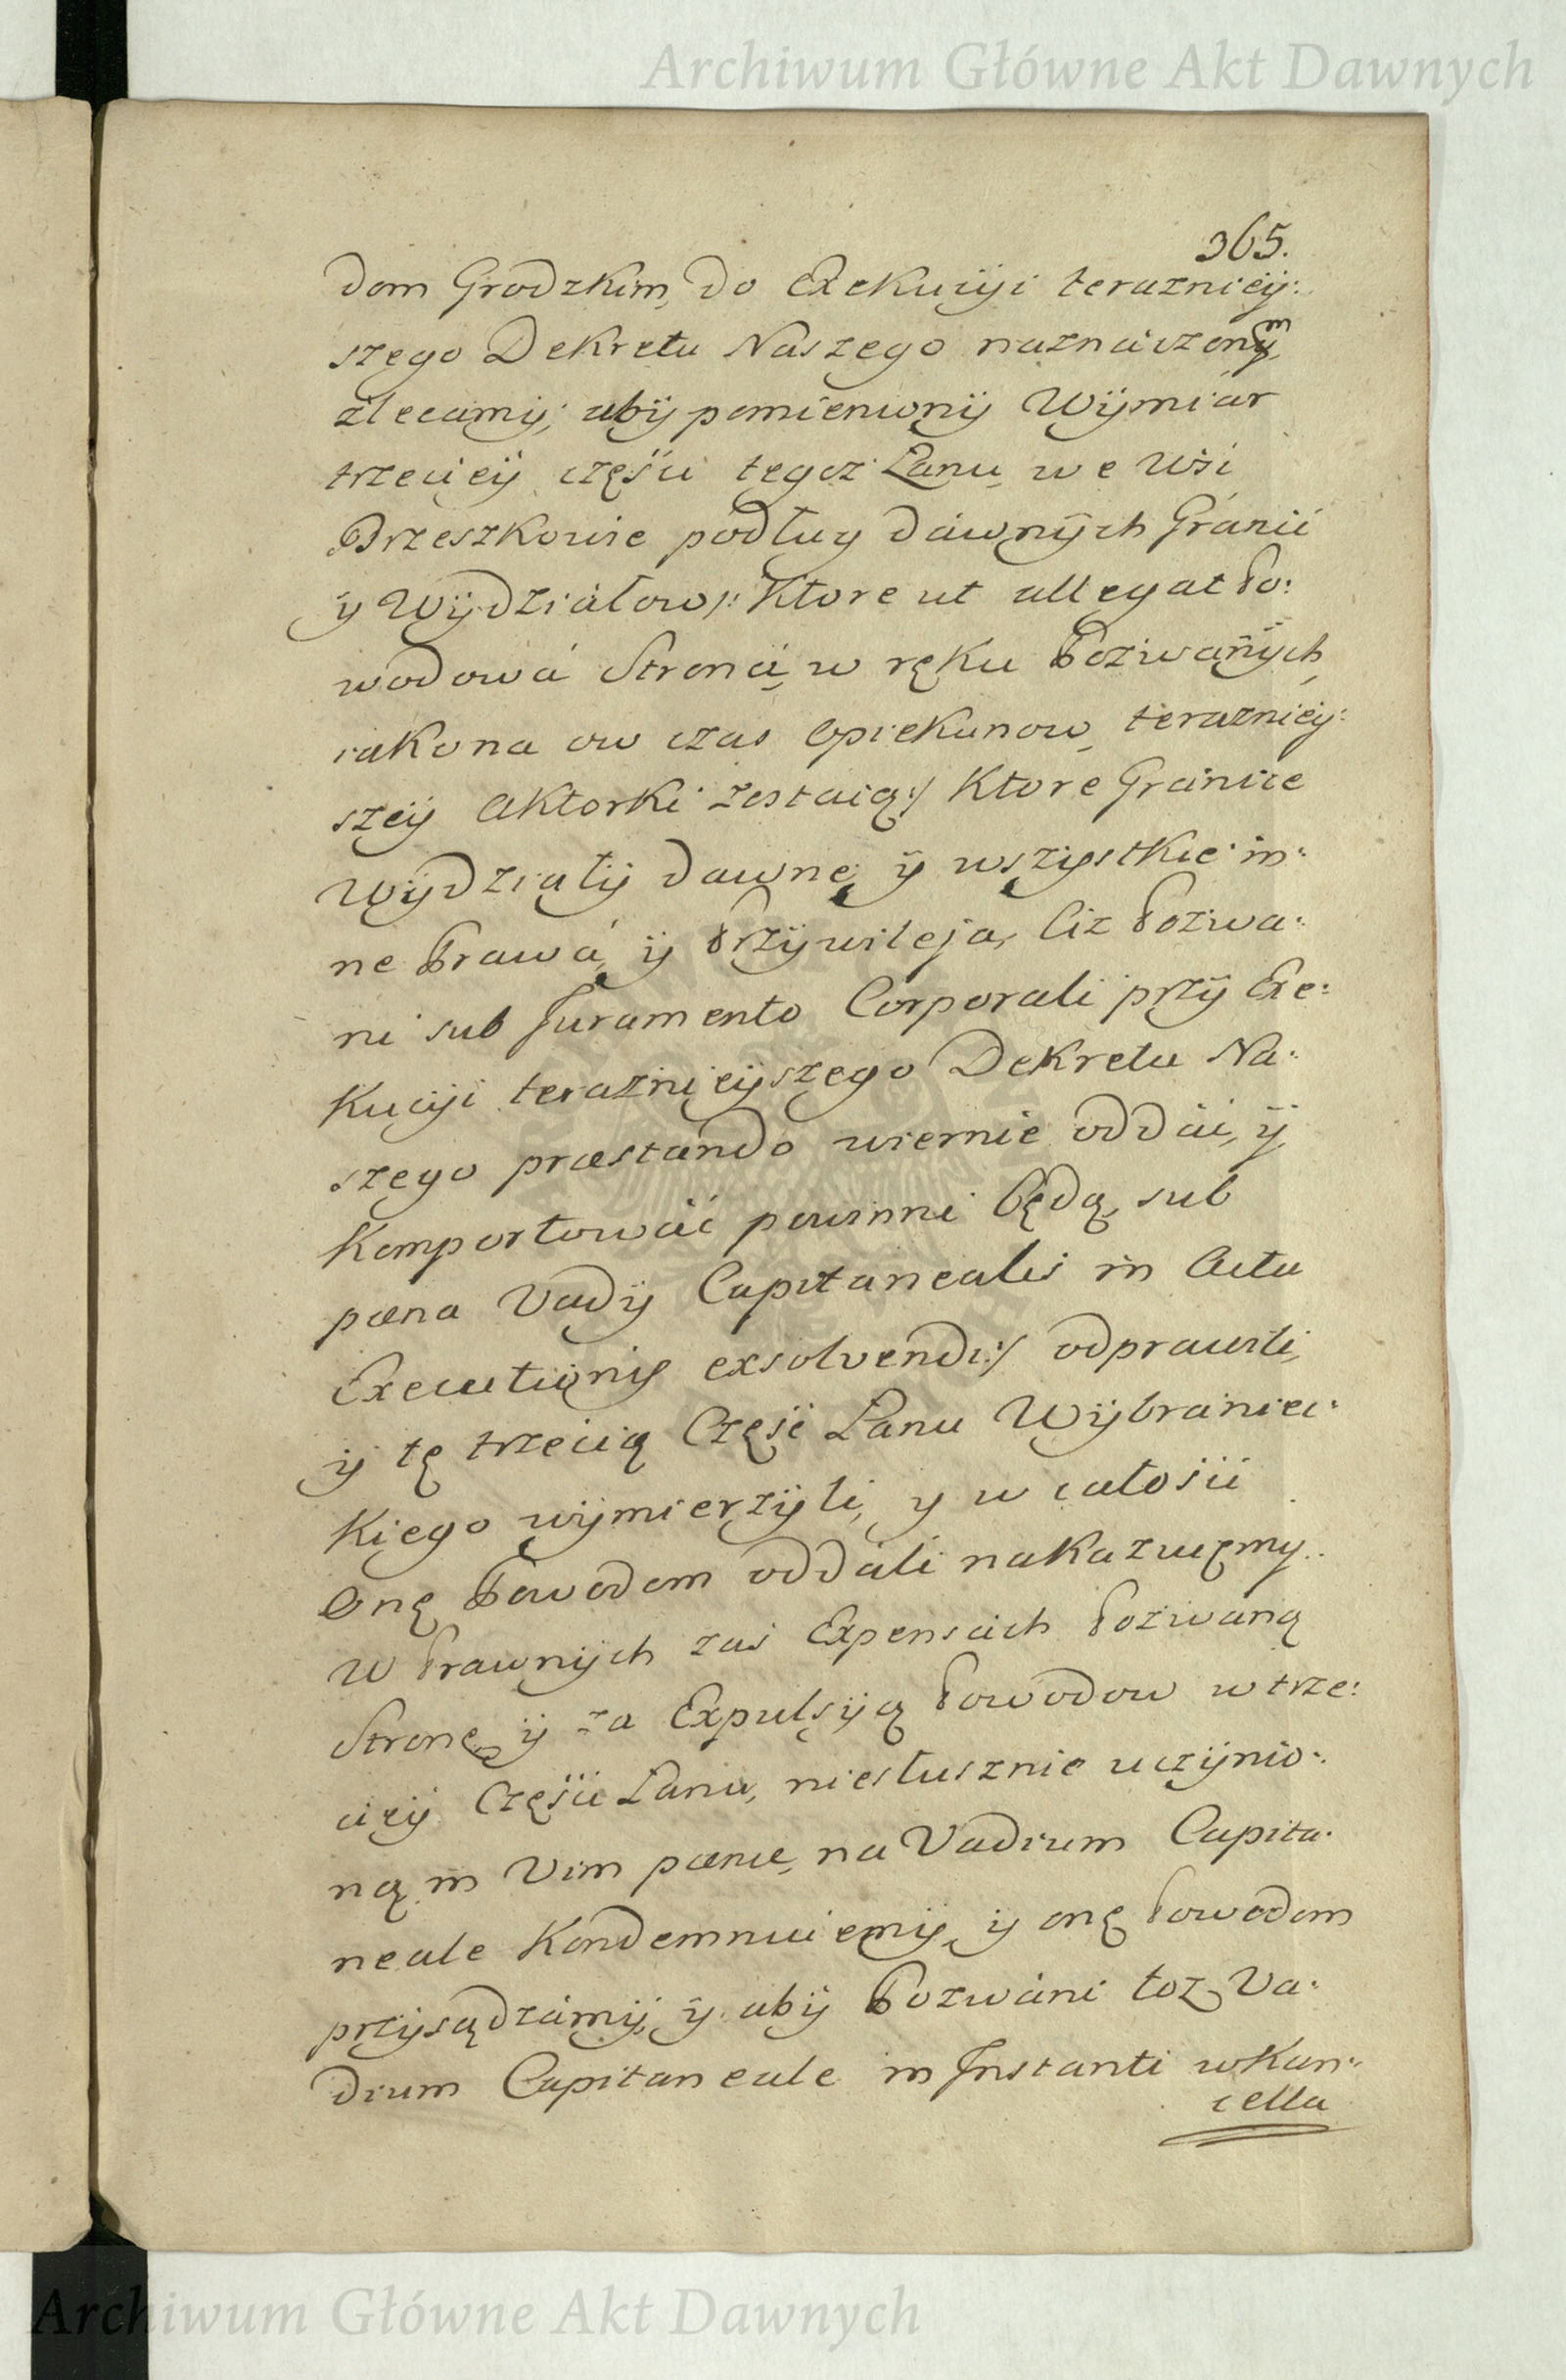 Archiwum Główne Akt Dawnych
365.
dom Grodzkim, do Exekucÿi teraznieÿ:
szego Dekretu Naszego naznaczonÿm
zlecamÿ; abÿ pomienionÿ Wÿmiar
trzecieÿ części tegoż Łanu we Wsi
Brzeszkowie podług dawnÿch Granic
ÿ Wÿdziałow /: Ktore ut allegat Po:
wodowa Strona, w ręku Pozwanÿch,
iako na ow czas Opiekunow, teraznieÿ:
szeÿ Aktorki zostaią :/ Ktore Granice
Wÿdziałÿ dawne, ÿ wszÿstkie in:
ne Prawa, ÿ Przÿwileja, Ciż Pozwa:
ni sub Juramento Corporali przÿ Exe:
Kucÿi teraznieÿszego Dekretu Na:
szego præstando wiernie oddać, ÿ
Komportować powinni będą, sub
pæna Vadÿ Capitanealis in Actu
Executionis exsolvendi :/ odprawili,
ÿ tę trzecią Część Łanu Wÿbraniec:
Kiego wÿmierzÿli, y w całości
Onę Powodom oddali nakazuiemy.
W Prawnÿch zaś Expensach Pozwaną
Stronę, ÿ za Expulsÿą Powodow w trze:
cieÿ Części Łanu, niesłusznie uczÿnio:
ną in Vim pænæ, na Vadium Capita:
neale Kondemnuiemÿ, ÿ onę Powodom
przÿsądzamÿ, ÿ abÿ Pozwani toż Va:
dium Capitaneale in Instanti w Kan:
cella
Archiwum Główne Akt Dawnych